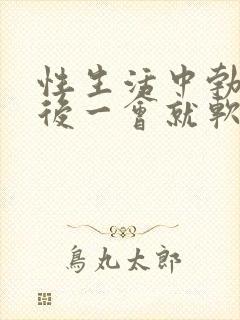 性生活中勃
後一會就軟
鳥丸太郎